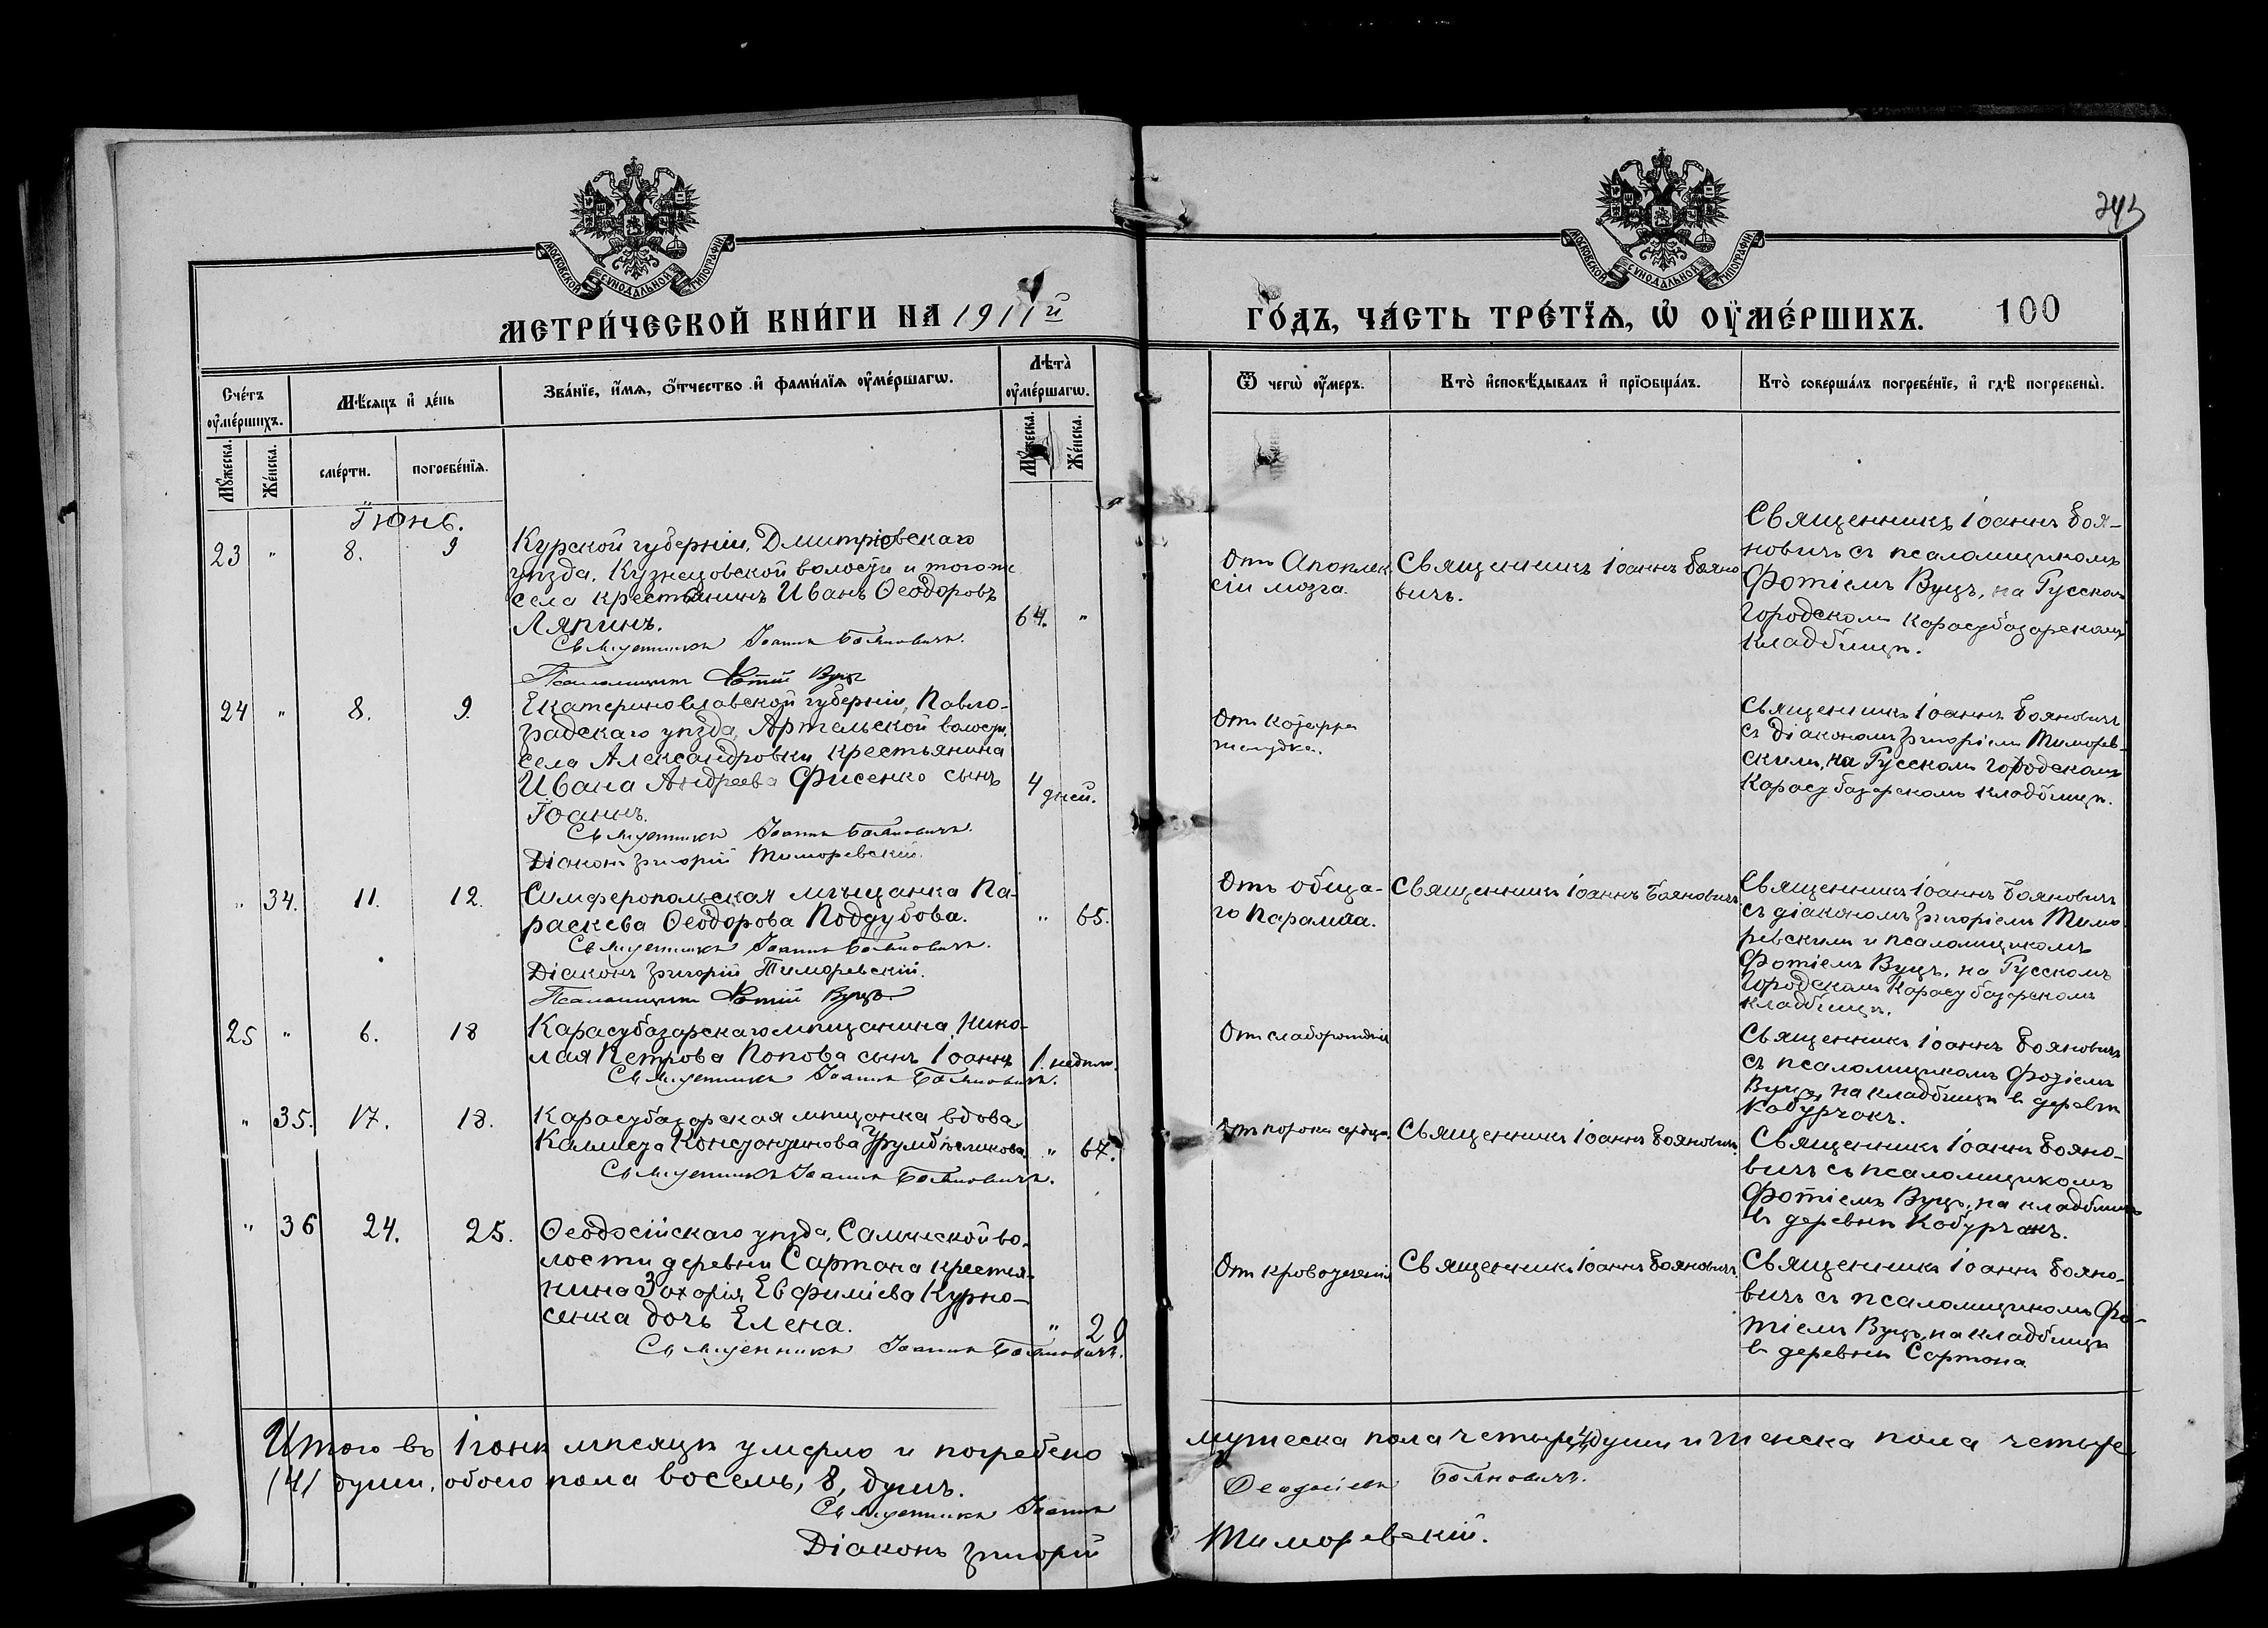 МОСКОВСКОЙ СѴНОДАЛЬНОЙ ТИПОГРАФІИ
МОСКОВСКОЙ СѴНОДАЛЬНОЙ ТИПОГРАФІИ
МЕТРИ́ЧЕСКОЙ КНИ́ГИ НА 1911й
ГО́ДЪ, ЧА́СТЬ ТРЕ́ТЇѦ, Ѡ҆ ОУ҆МЕ́РШИХЪ.
100
Сче́тъ
оу҆ме́ршихъ.
Мѣ́сяцъ и҆ де́нь
Зва́нїе, и҆́мѧ, ѻ҆́тчество и҆ фами́лїѧ оу҆ме́ршагѡ.
Лѣта̀
оу҆ме́ршагѡ.
Ѿ чегѡ̀ оу҆́меръ.
Кто̀ и҆сповѣ́дывалъ и҆ прїѡбща́лъ.
Кто̀ соверша́лъ погребе́нїе, и҆ гдѣ̀ погребены̀.
Мꙋ́жеска.
Же́нска.
сме́рти.
погребе́нїѧ.
Мꙋ́жеска.
Же́нска.
Іюнь.
23 " 8. 9
Курской губерніи, Дмитріевскаго
уѣзда, Кузнецовской волости и тогоже
села крестьянинъ Иванъ Ѳеодоровъ
Ляпинъ.
64. "
Священникъ Іоаннъ Бояновичъ.
Псаломщикъ Фотій Вуцъ
Отъ Апоплек
сіи мозга.
Священникъ Іоаннъ Бояно
вичъ.
Священникъ Іоаннъ Боя-
новичъ съ псаломщикомъ
Фотіемъ Вуцъ, на Русском
Городском Карасубазарскомъ
кладбищѣ.
24 " 8. 9.
Екатеринославской губерніи, Павло-
градскаго уѣзда, Артельской волости,
села Александровки крестьянина
Ивана Андреева Фисенко сынъ
Іоаннъ.
4 дней.
Священникъ Іоаннъ Бояновичъ.
Діаконъ Григорій Тиморевскій.
Отъ катарра
желудка.
Священникъ Іоаннъ Бояновичъ
съ Діакономъ Григоріемъ Тиморев-
скимъ, на Русскомъ Городскомъ
Карасубазарскомъ кладбищѣ.
" 34. 11. 12.
Симферопольская мѣщанка Па-
раскева Ѳеодорова Поддубова.
" 65.
Священникъ Іоаннъ Бояновичъ.
Діаконъ Григорій Тиморевскій.
Псаломщикъ Фотій Вуцъ.
Отъ обща-
го паралича.
Священникъ Іоаннъ Бояновичъ
Священникъ Іоаннъ Бояновичъ
съ діакономъ Григоріемъ Тимо
ревскимъ и псаломщикомъ
Фотіемъ Вуцъ, на Русскомъ
Городскомъ Карасубазарскомъ
кладбищѣ.
25 " 6. 18
Карасубазарскаго мѣщанина Нико-
лая Петрова Попова сынъ Іоаннъ
1. недѣли.
Священникъ Іоаннъ Бояновичъ.
Отъ слаборожденія
Священникъ Іоаннъ Бояновичъ
съ псаломщикомъ Фотіемъ
Вуцъ, на кладбищѣ в деревнѣ
Кабурчакъ.
" 35. 17. 18.
Карасубазарская мѣщанка вдова
Константинова
" 67.
Священникъ Іоаннъ Бояновичъ.
Отъ порока сердца.
Священникъ Іоаннъ Бояновичъ.
Священникъ Іоаннъ Бояно-
вичъ съ псаломщикомъ
Фотіемъ Вуцъ, на кладбищѣ
в деревнѣ Кабурчакъ.
" 36 24. 25.
Ѳеодосійскаго уѣзда, Салынской во-
лости деревни Сартана крестья-
нина Захарія Евфиміева Курно-
сенка дочь Елена.
" 20
Священникъ Іоаннъ Бояновичъ.
Отъ кровотеченія
Священникъ Іоаннъ Бояновичъ
Священникъ Іоаннъ Бояно-
вичъ съ псаломщикомъ Фо-
тіемъ Вуцъ, на кладбищѣ
в деревнѣ Сартана.
Итого въ Іюнѣ мѣсяцѣ умерло и погребено мужеска пола четыре (4) души и женска пола четыре
(4) души, обоего пола восемь, 8, душъ.
Священникъ Іоаннъ Ѳеодосіевъ Бояновичъ.
Діаконъ Григорій Тиморевскій.